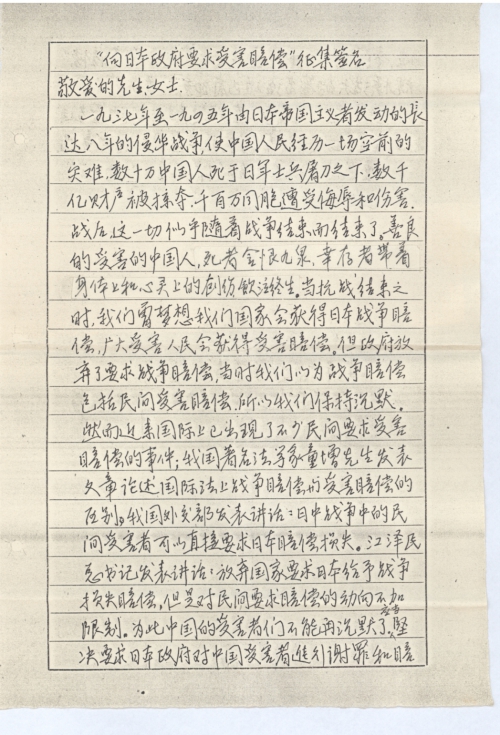 “向日本政府要求受害赔偿”征集签名
敬爱的先生、女士.
一九三七年至一九四五年由日本帝国主义者发动的長
达八年的侵华战争使中国人民经历一场空前的
灾难,数十万中国人死于日军士兵屠刀之下,数千
亿财产被掠夺,千百万同胞遭受侮辱和伤害.
战后,这一切似乎随着战争结束而结束了。善良
的受害的中国人,死者含恨九泉,幸存者带着
身体上和心灵上的创伤饮泣终生。当抗战结束之
时,我们曾梦想我们国家会获得日本战争赔
偿,广大受害人民会获得受害赔偿。但政府放
弃了要求战争赔偿,当时我们以为战争赔偿
包括民间受害赔偿,所以我们保持沉默。
然而近来国际上已出现了不少民间要求受害
赔偿的事件;我国著名法学家童增先生发表
文章论述国际法上战争赔偿和受害赔偿的
区别,我国外交部发表讲话:日中战争中的民
间受害者可以直接要求日本赔偿损失。江泽民
总书记发表讲话:放弃国家要求日本给予战争
损失赔偿,但是对民间要求赔偿的动向不加
限制。为此中国的受害者们不能再沉默了,应当坚
决要求日本政府对中国受害者進行谢罪和赔